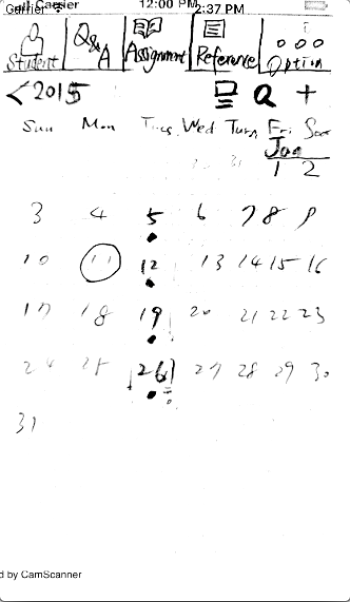 Carrier 12:00 PM 2:37 PM
Student Q&A Assignment Reference Option
< 2015 Q +
Sun Mon Tues Wed Turs Fri Sat
Jan
31 1 2
3 4 5 6 7 8 9
10 11 12 13 14 15 16
17 18 19 20 21 22 23
24 25 26 27 28 29 30
31
d by CamScanner